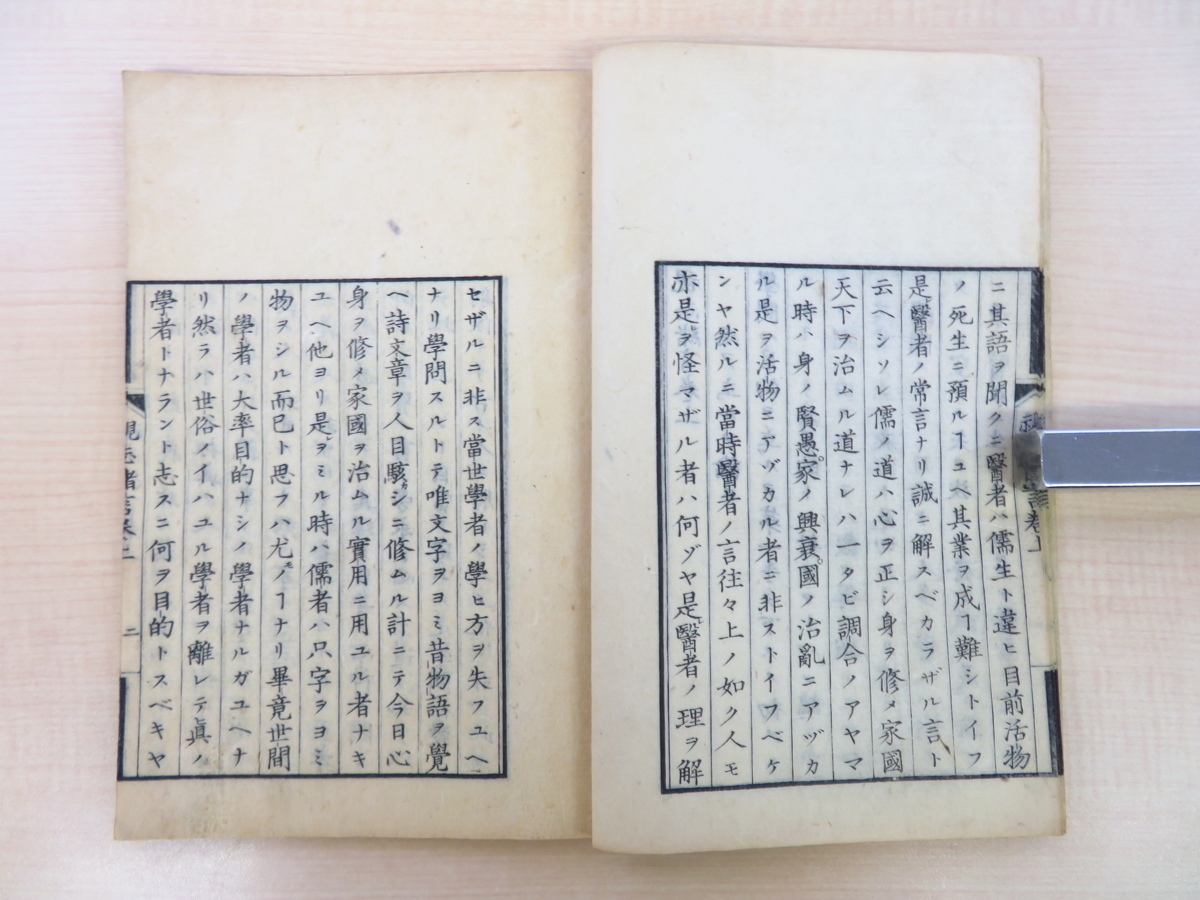 ニ其語ヲ聞クニ醫者ハ儒生ト違ヒ目前活物
ノ死生ニ預ルヿユヘ其業ヲ成ヿ難シトイフ
是醫者ノ常言ナリ誠ニ解スベカラザル言ト
云ヘシソレ儒ノ道ハ心ヲ正シ身ヲ修メ家國
天下ヲ治ムル道ナレハ一タビ調合ノアヤマ
ル時ハ身ノ賢愚家ノ興衰國ノ治亂ニアヅカ
ル是ヲ活物ニアヅカル者ニ非ストイフベケ
ンヤ然ルニ當時醫者ノ言往々上ノ如ク人モ
亦是ヲ怪マザル者ハ何ゾヤ是醫者ノ理ヲ解
セザルニ非ス當世學者ノ學ヒ方ヲ失フユヘ
ナリ學問スルトテ唯文字ヲヨミ昔物語ヲ覺
ヘ詩文章ヲ人目駭シニ修ムル計ニテ今日心
身ヲ修メ家國ヲ治ムル實用ニ用ユル者ナキ
ユヘ他ヨリ是ヲミル時ハ儒者ハ只字ヲヨミ
物ヲシル而已ト思フハ尤ノヿナリ畢竟世間
ノ學者ハ大率目的ナシノ學者ナルガユヘナ
リ然ラハ世俗ノイハユル學者ヲ離レテ眞ノ
學者トナラント志スニ何ヲ目的トスベキヤ
視志緒言卷上
二